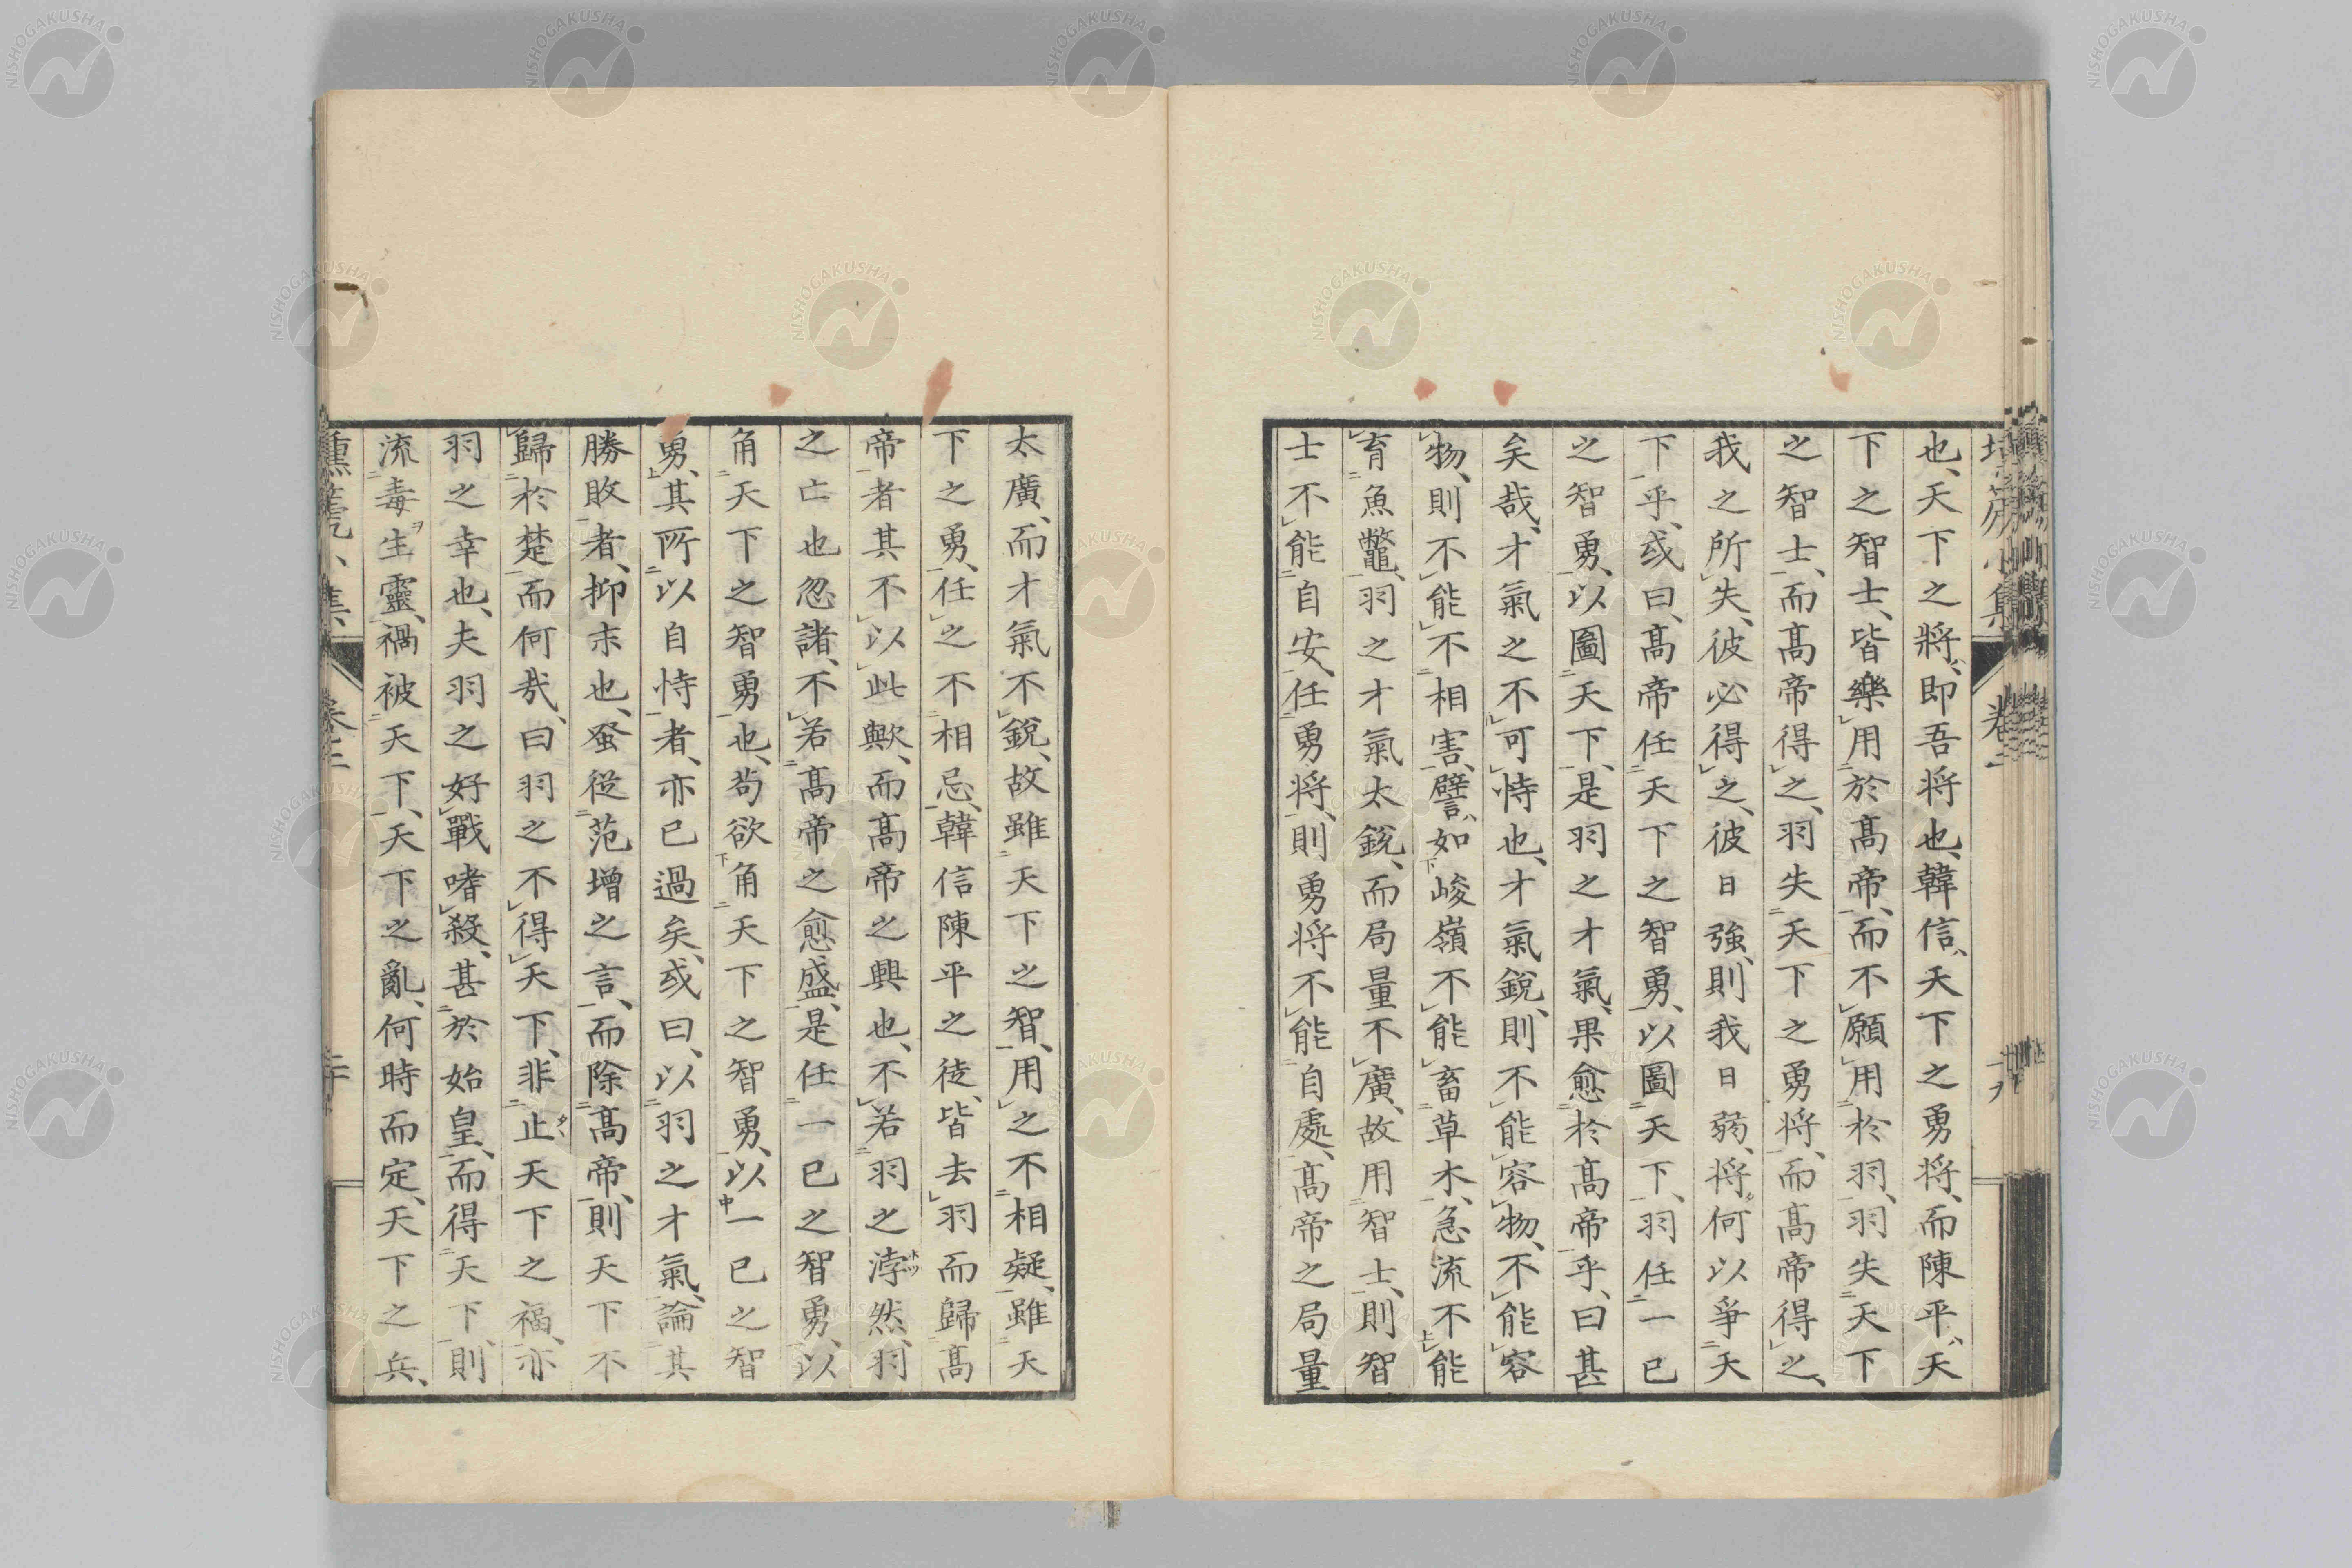 也、天下之將、即吾將也、韓信、天下之勇將、而陳平、天
下之智士、皆樂用於髙帝、而不願用於羽、羽失天下
之智士、而髙帝得之、羽失天下之勇將、而髙帝得之、
我之所失、彼必得之、彼日強、則我日弱、將何以爭天
下乎、或曰、髙帝任天下之智勇、以圖天下、羽任一已
之智勇、以圖天下、是羽之才氣、果愈於髙帝乎、曰甚
矣哉、才氣之不可恃也、才氣銳、則不能容物、不能容
物、則不能不相害、譬如峻嶺不能畜草木、急流不能
育魚鼈、羽之才氣太銳、而局量不廣、故用智士、則智
士不能自安、任勇將、則勇將不能自處、髙帝之局量
太廣、而才氣不銳、故雖天下之智、用之不相疑、雖天
下之勇、任之不相忌、韓信陳平之徒、皆去羽而歸髙
帝者其不以此歟、而髙帝之興也、不若羽之浡然、羽
之亡也忽諸、不若髙帝之愈盛、是任一已之智勇、以
角天下之智勇也、茍欲角天下之智勇、以一已之智
勇、其所以自恃者、亦已過矣、或曰、以羽之才氣、論其
勝敗者、抑末也、蚤從范增之言、而除髙帝、則天下不
歸於楚而何哉、曰羽之不得天下、非止天下之福、亦
羽之幸也、夫羽之好戰嗜殺、甚於始皇、而得天下、則
流毒生靈、禍被天下、天下之亂、何時而定、天下之兵、
卷二
NISHOGAKUSHA